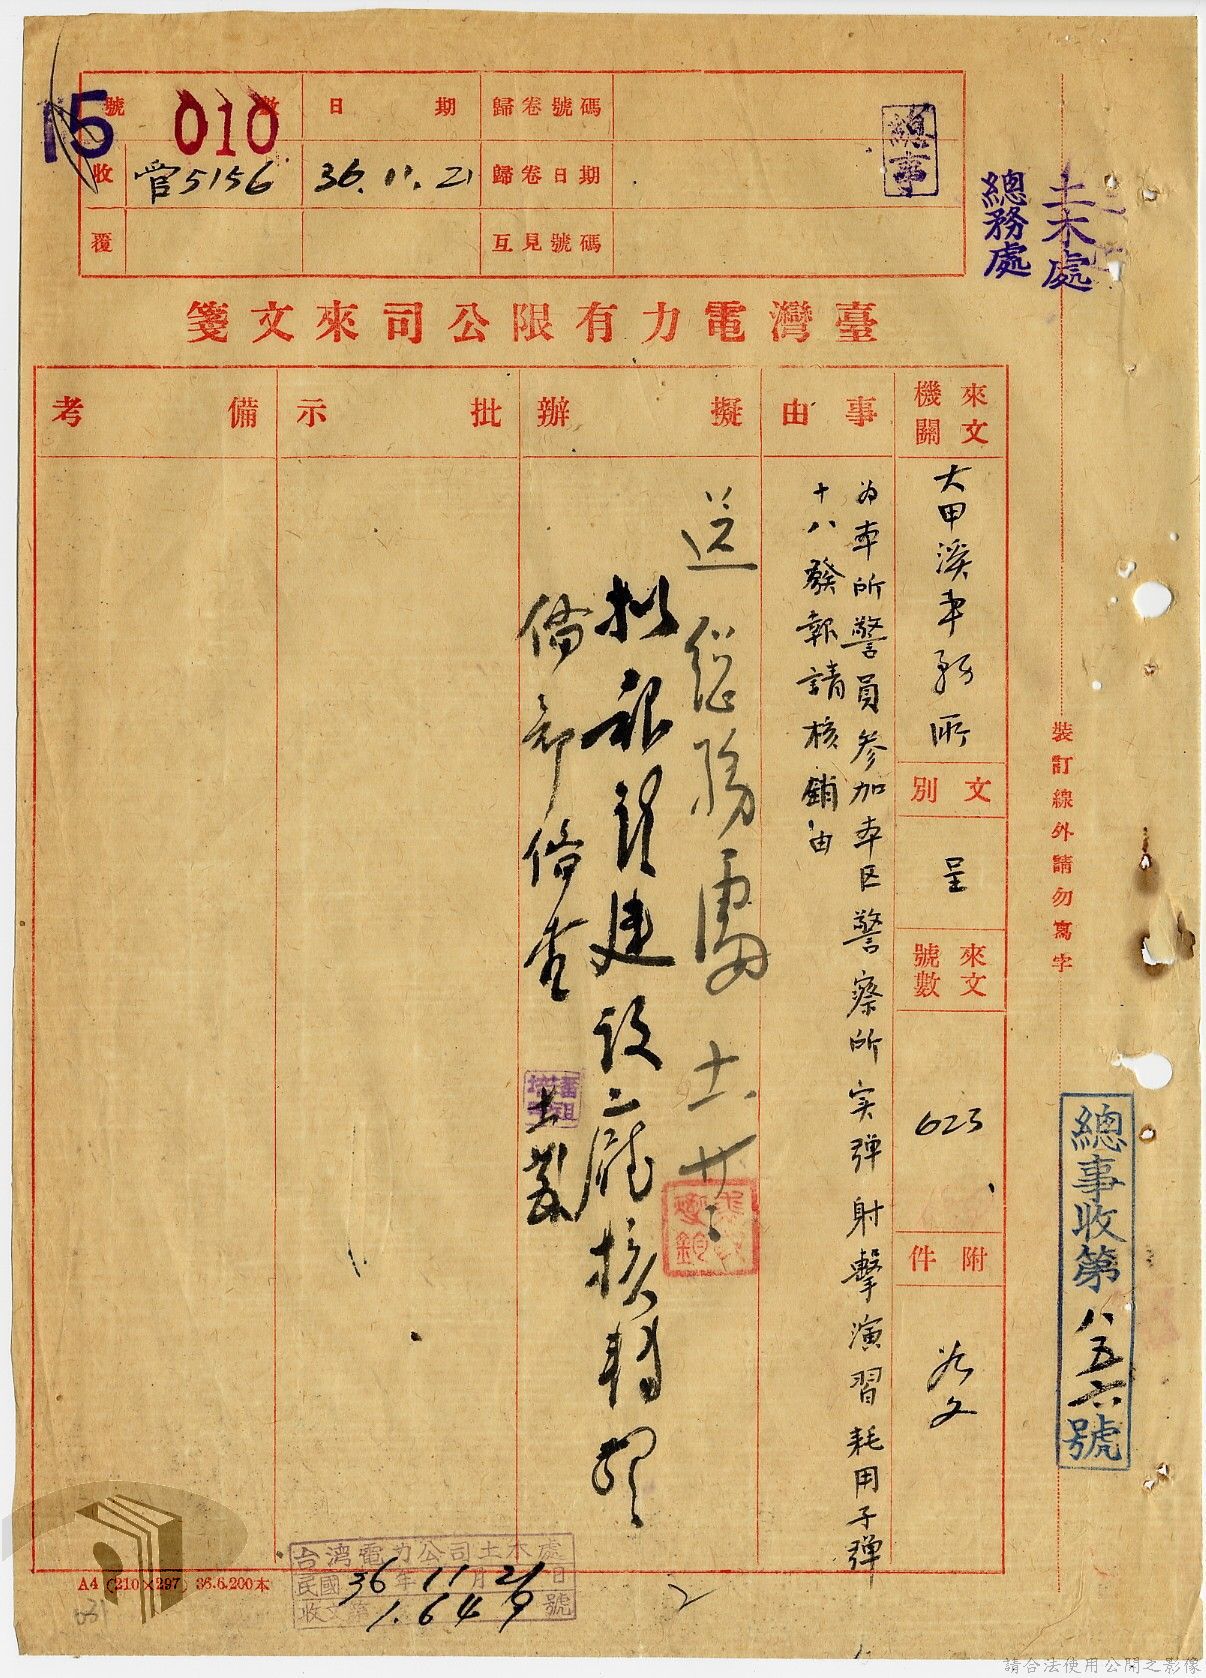 15
010
號數
日期
歸卷號碼
收
管5156
36.11.21
歸卷日期
覆
互見號碼
總事
土木處
總務處
臺灣電力有限公司來文箋
來文機關
事由
擬辦
批示
備考
大甲溪
所
文別
呈
來文號數
623
附件
文
為本所警員參加本区警察所实弹射擊演習耗用子弹
十八發報請核銷由
送總務處 十一 廿二
擬報請建設廳核轉
備查
裝訂線外請勿寫字
總事收第八五六號
台湾電力公司土木處
民國36年11月21日
收文第1.649號
A4 (210×297) 36.6.200本
2
請合法使用公開之影像